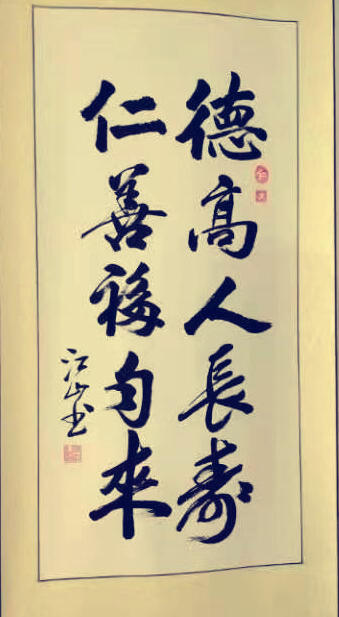 德高人長壽
仁善福自來
江山书